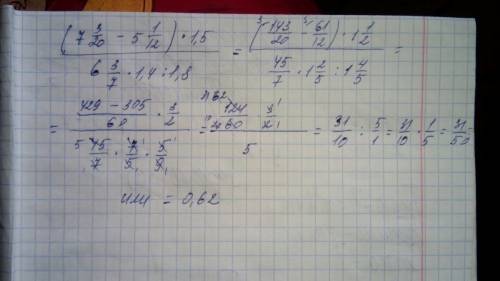 (7 3/20 − 5 1/12) · 1,5 / 6 3/7 · 1,4 : 1,8 = (³143/20 − ⁵61/12) · 1 1/2 / 45/7 · 1 2/5 : 1 4/5 =
= 429 − 305/60 · 3/2 / ⁵45/7 · 7¹/5₁ · 5¹/9₁ = 124/60 · 3¹/2₁ / 5 = 31/10 : 5/1 = 31/10 · 1/5 = 31/50 =
или = 0,62